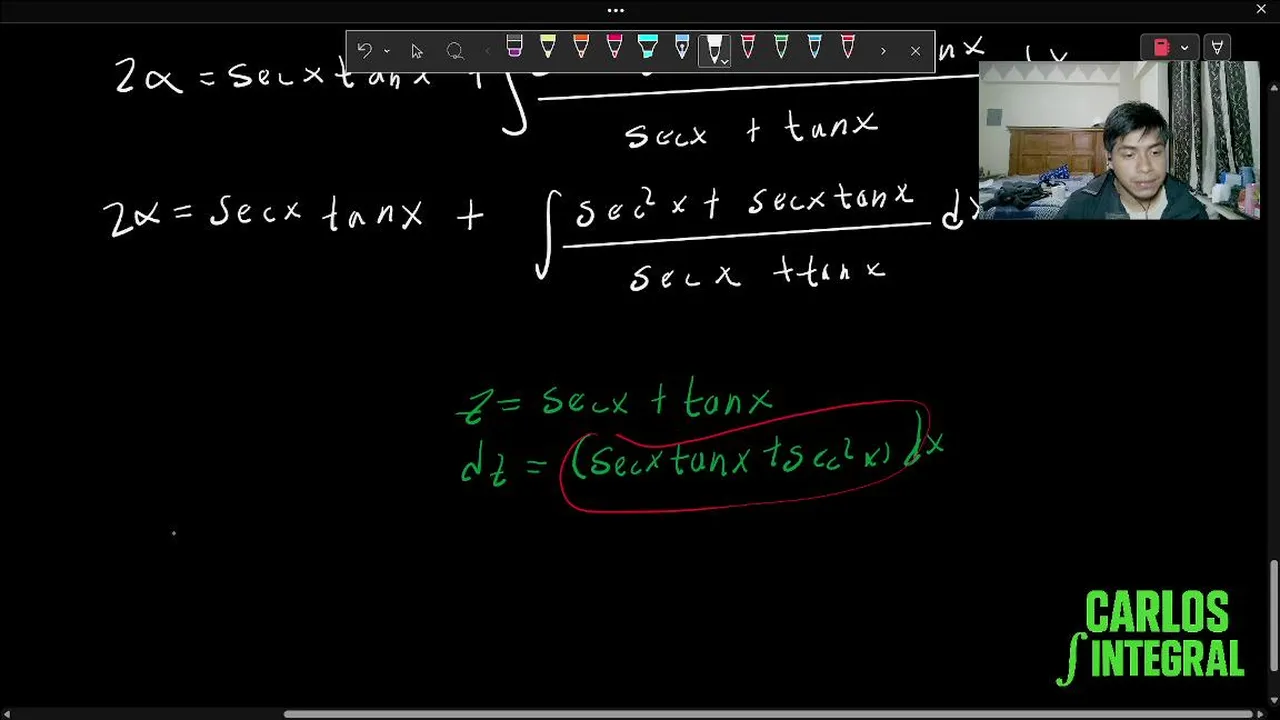 2α = secx tanx + ∫ nx dx
secx + tanx
2α = secx tanx + ∫ sec² x + secx tanx dx
secx + tanx
z = secx + tanx
dz = (secx tanx + sec² x) dx
CARLOS
∫ INTEGRAL